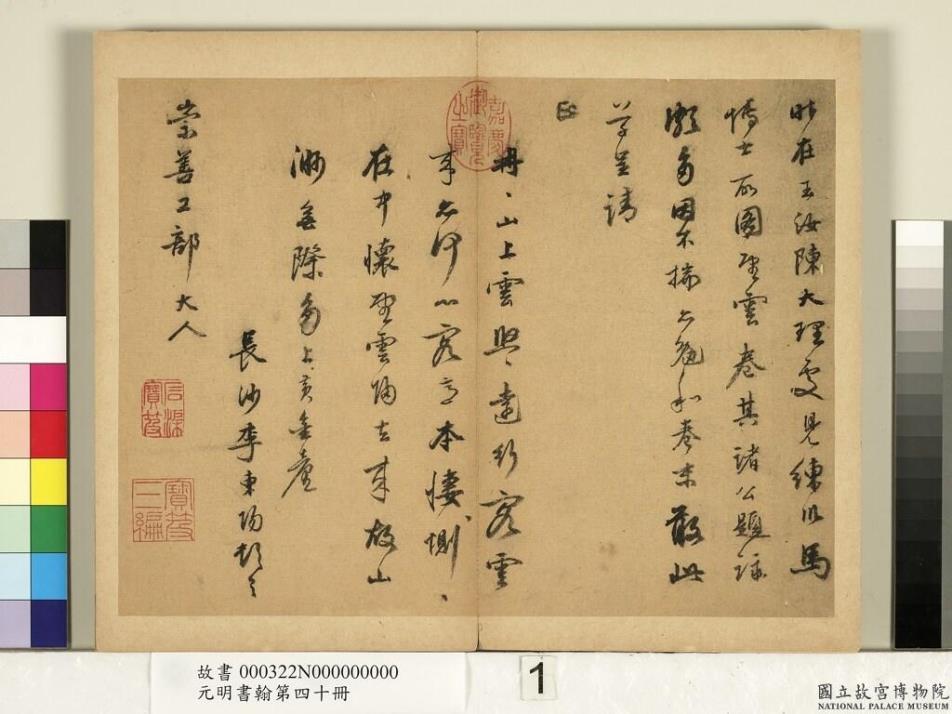 昨在玉汝陳大理處見練川馬
博士所圖望雲卷其諸公題詠
頗多因不揣亦勉和卷末敢此
草呈請
正
冉、山上雲興、遠行客雲
事亦何心客意本悽惻、
在中懷望雲歸去來故山
渺無際
長沙李東陽頓首
崇善工部大人
嘉慶御覽之寶
石渠寶笈
寶笈三編
故書 000322N000000000
元明書翰第四十冊
1
國立故宮博物院
NATIONAL PALACE MUSEUM